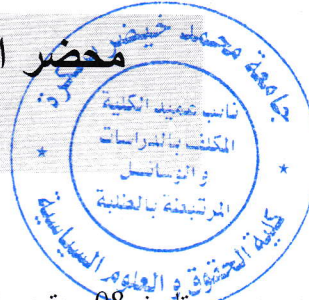 محضر ا
جامعة محمد خيضر بسكرة
نائب عميد الكلية
المكلف بالدراسات
و الوسائل
المرتبطة بالطلبة
كلية الحقوق و العلوم السياسية
08